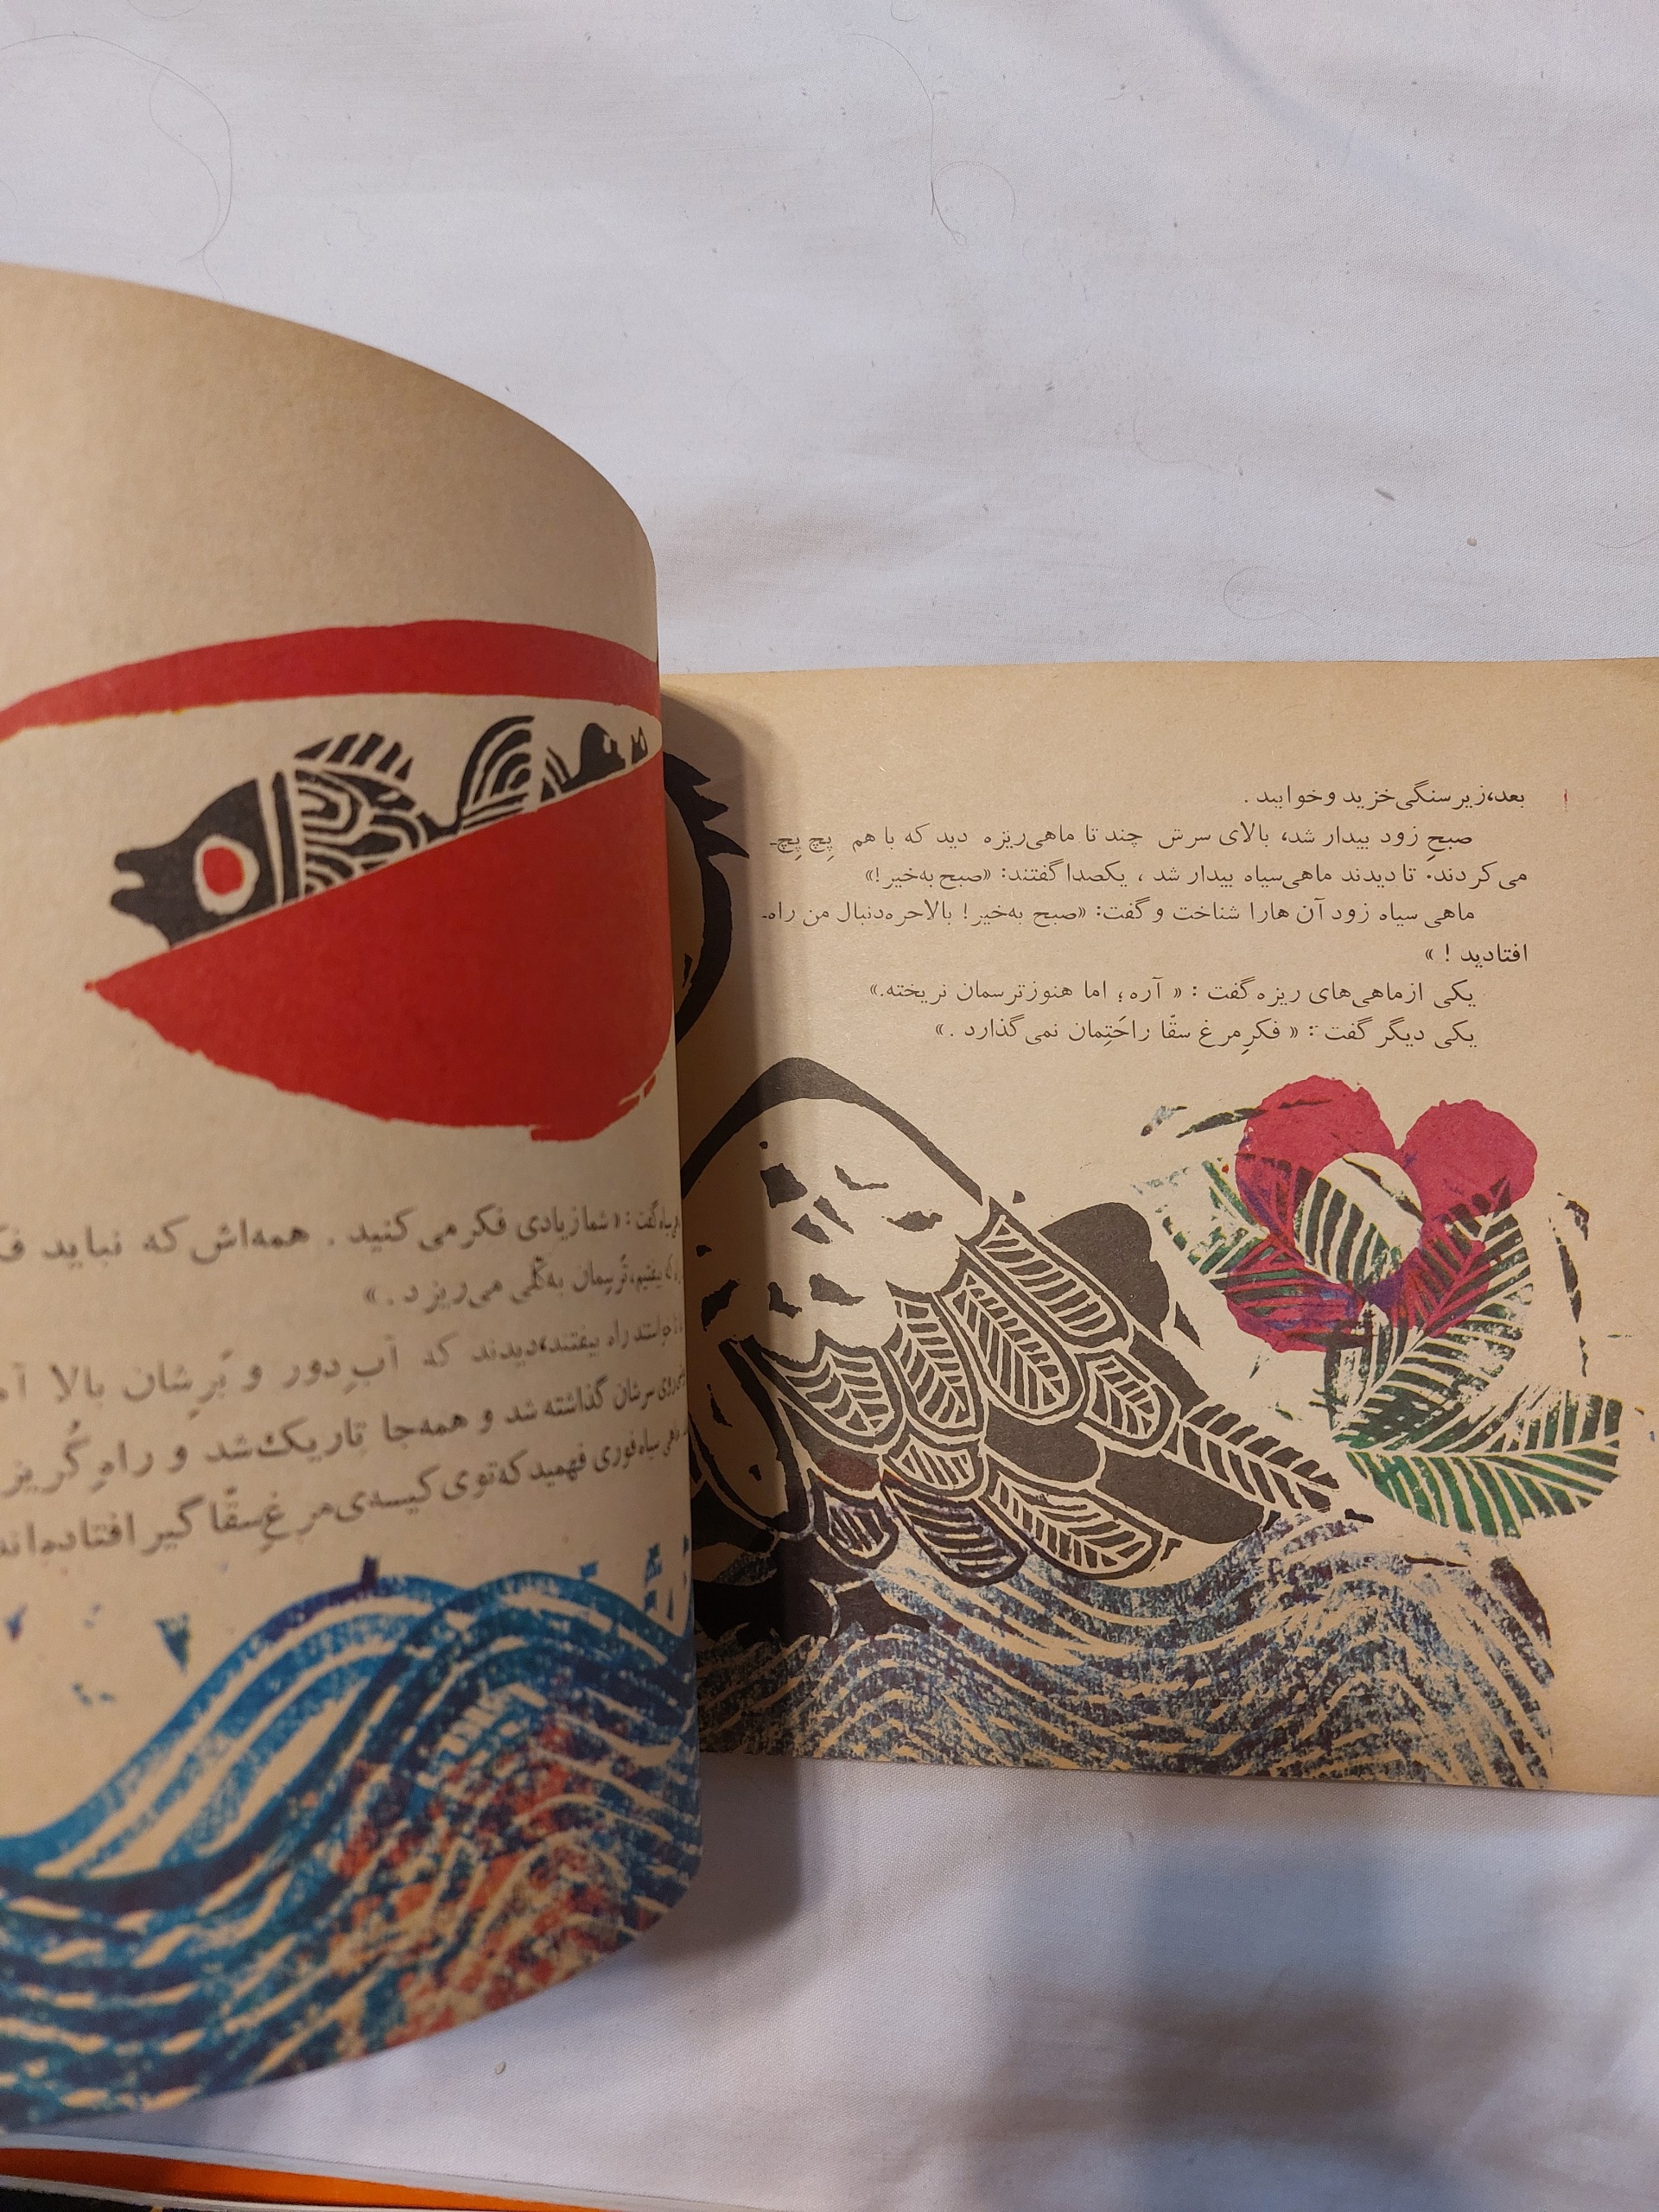 بعد،زیر سنگی خزید و خوابید .
صبحِ زود بیدار شد، بالای سرش چند تا ماهی‌ریزه دید که با هم پِچ پِچ-
می‌کردند. تا دیدند ماهی‌سیاه بیدار شد ، یکصدا گفتند: «صبح به‌خیر!»
ماهی سیاه زود آن هارا شناخت و گفت: «صبح به‌خیر! بالاخره دنبال من راه-
افتادید ! »
یکی ازماهی‌های ریزه گفت : « آره؛ اما هنوز ترسمان نریخته.»
یکی دیگر گفت : « فکرِ مرغ سقّا راحَتِمان نمی‌گذارد .»
گفت : « شما زیادی فکر می‌کنید . همه‌اش که نباید
که بیفتیم، تَرسِمان به‌کلّی می‌ریزد .»
راه بیفتند،دیدند که آبِ دور و بَرِشان بالا
روی سرشان گذاشته شد و همه‌جا تاریک شد و راهِ گُریز
ماهی سیاه فوری فهمید که توی کیسه‌ی مرغِ سقّا گیر افتاده‌اند